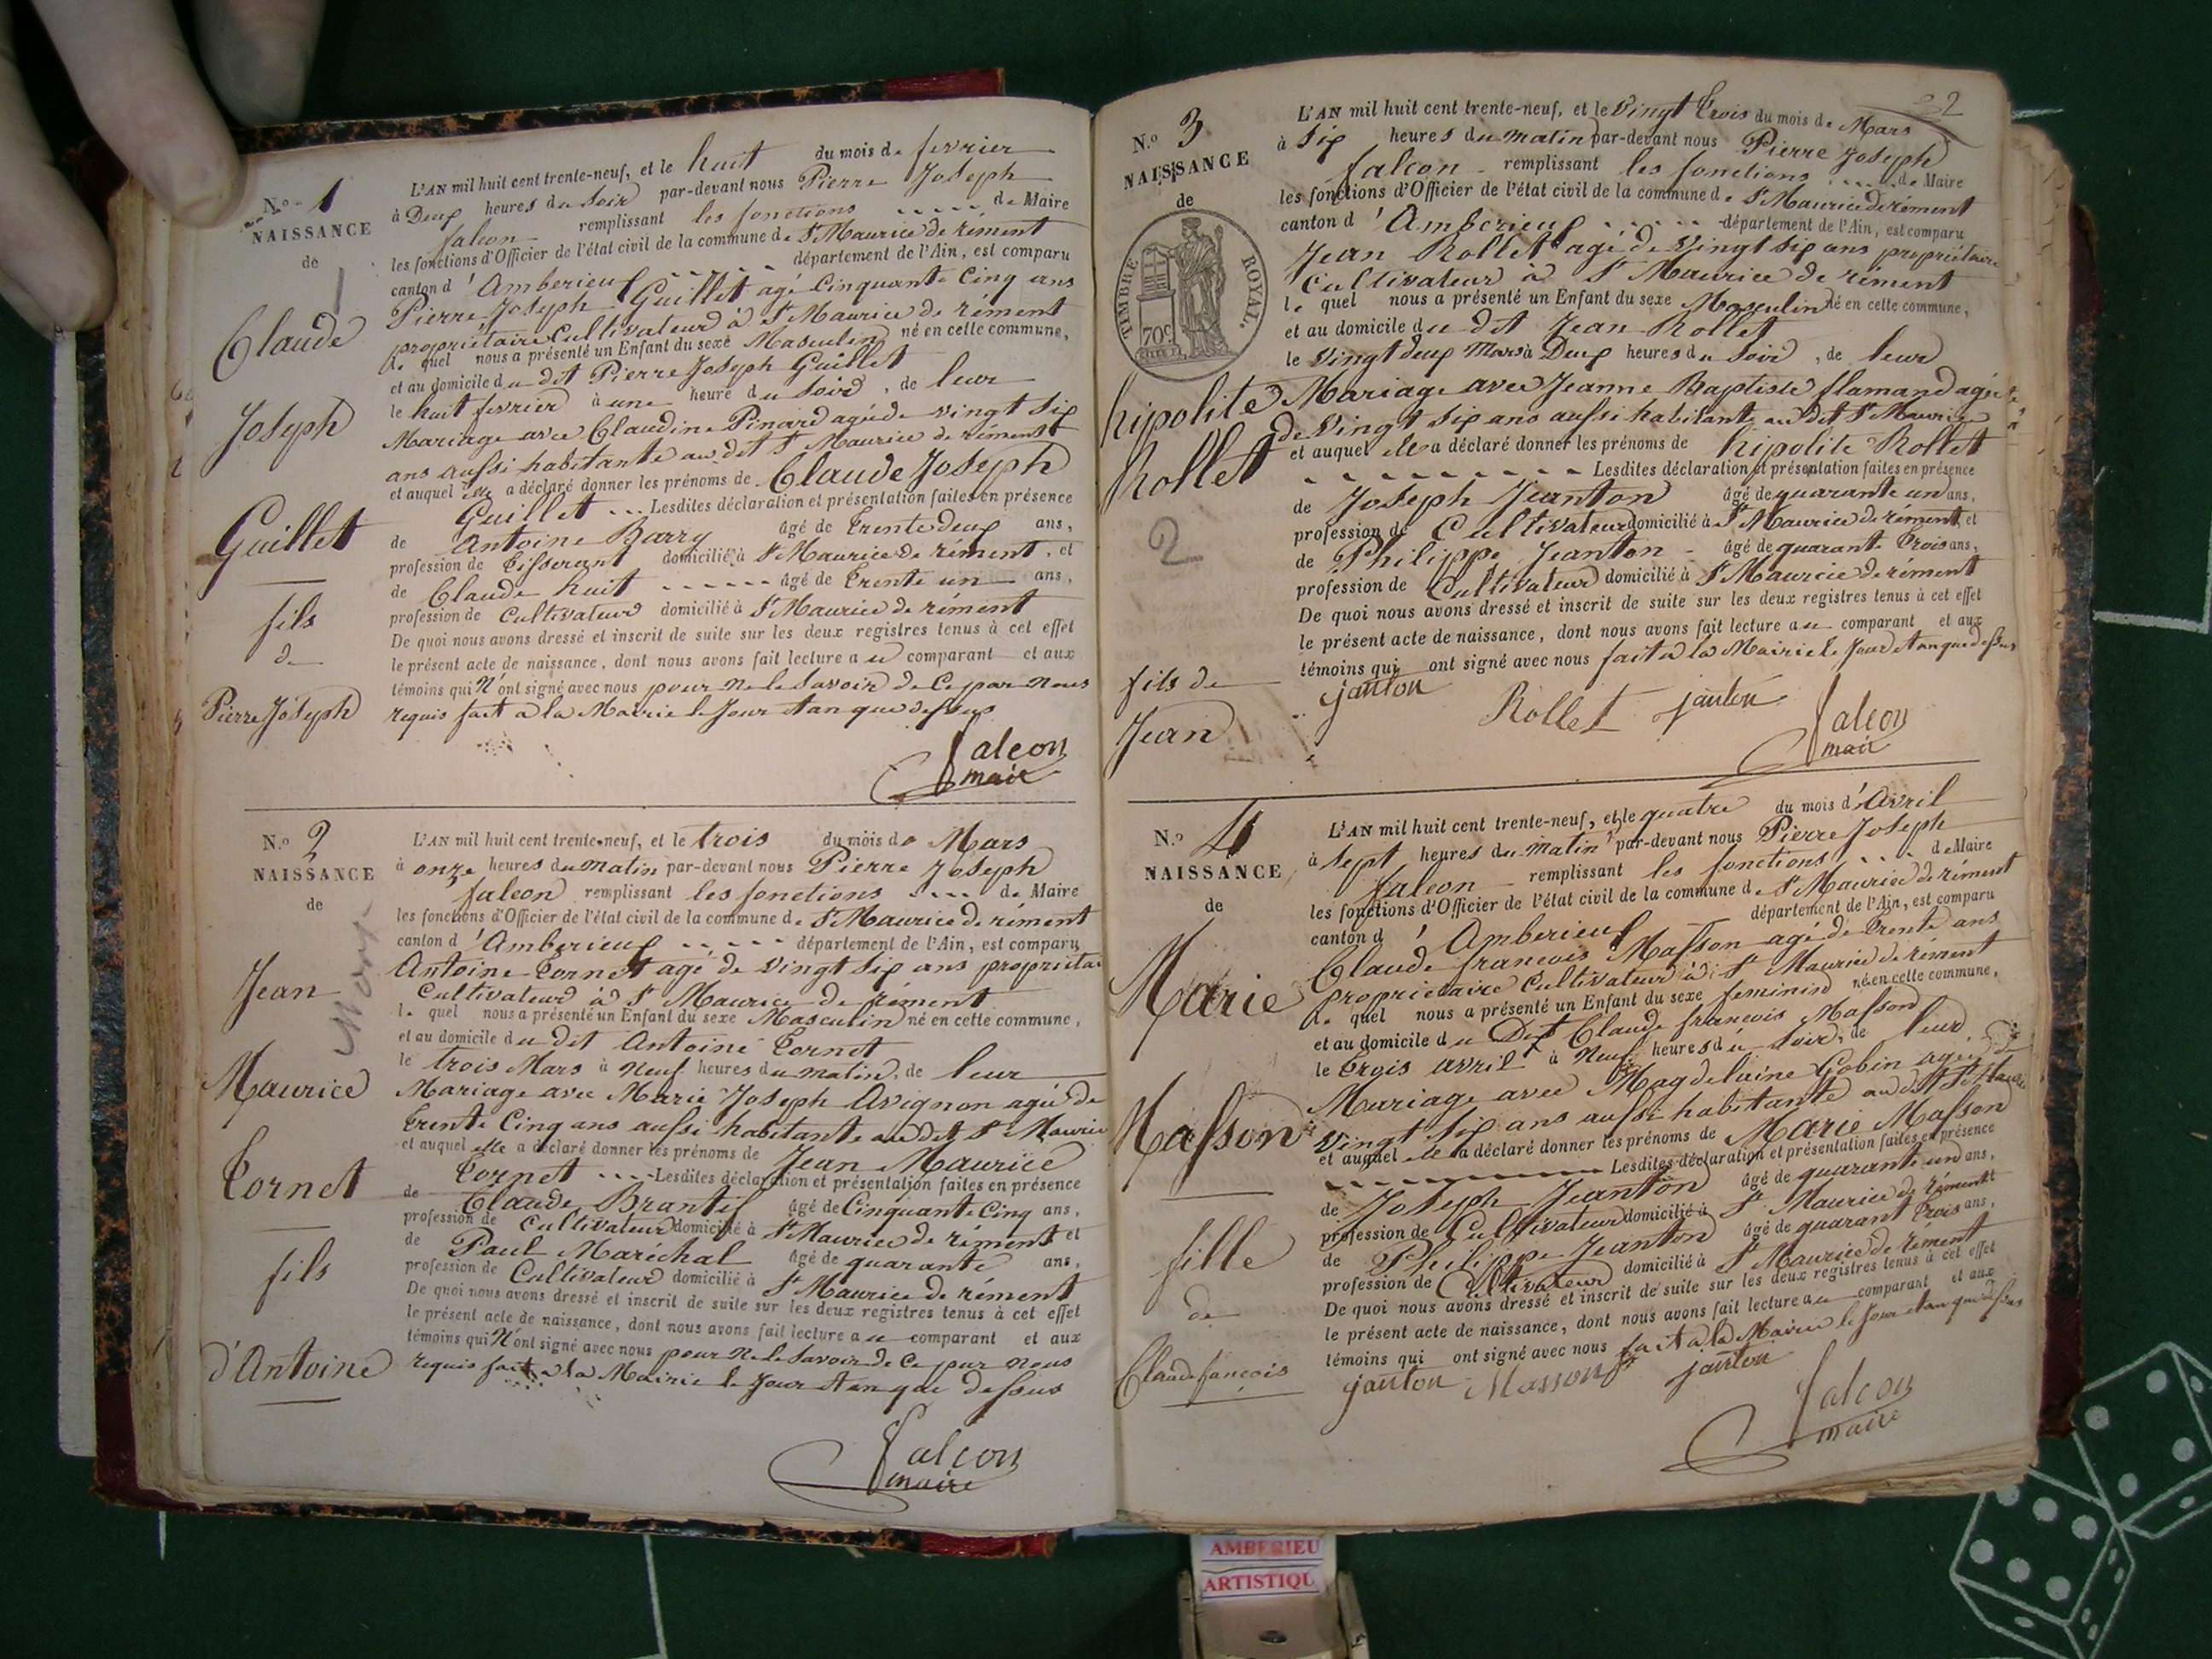 N.º 1
NAISSANCE
de
Claude
Joseph
Guillet
fils
de
Pierre Joseph
L'AN mil huit cent trente-neuf, et le huit du mois de fevrier
à Deux heures du Soir par-devant nous Pierre Joseph
falcon remplissant les fonctions de Maire
les fonctions d'Officier de l'état civil de la commune de St Maurice de rément
canton d'Amberieux département de l'Ain, est comparu
Pierre Joseph Guillet agé Cinquante Cinq ans
propriétaire Cultivateur à St Maurice de rément
le quel nous a présenté un Enfant du sexe Masculin né en cette commune,
et au domicile du dit Pierre Joseph Guillet
le huit fevrier à une heure du Soir, de leur
Mariage avec Claudine Pinard agée de vingt Six
ans aussi habitante au dit St Maurice de rément
et auquel elle a déclaré donner les prénoms de Claude Joseph
Guillet ... Lesdites déclaration et présentation faites en présence
de Antoine Barry âgé de Trente Deux ans,
profession de Tisserant domicilié à St Maurice de rément, et
de Claude huit âgé de Trente un ans,
profession de Cultivateur domicilié à St Maurice de rément
De quoi nous avons dressé et inscrit de suite sur les deux registres tenus à cet effet
le présent acte de naissance, dont nous avons fait lecture au comparant et aux
témoins qui N'ont signé avec nous pour ne le Savoir de Ce par nous
requis fait a la Mairie le Jour et an que dessus
falcon
maire
N.º 2
NAISSANCE
de
Jean
Maurice
Tornet
fils
d'Antoine
L'AN mil huit cent trente-neuf, et le trois du mois de Mars
à onze heures du matin par-devant nous Pierre Joseph
falcon remplissant les fonctions de Maire
les fonctions d'Officier de l'état civil de la commune de St Maurice de rément
canton d'Amberieux département de l'Ain, est comparu
Antoine Tornet agé de Vingt Six ans proprietai
Cultivateur à St Maurice de rément
le quel nous a présenté un Enfant du sexe Masculin né en cette commune,
et au domicile du dit Antoine Tornet
le trois Mars à Neuf heures du matin, de leur
Mariage avec Marie Joseph Avignon agée de
Trente Cinq ans aussi habitante au dit St Maurice
et auquel elle a déclaré donner les prénoms de Jean Maurice
Tornet .... Lesdites déclaration et présentation faites en présence
de Claude Brantif âgé de Cinquante Cinq ans,
profession de Cultivateur domicilié à St Maurice de rément et
de Paul Maréchal âgé de quarante ans,
profession de Cultivateur domicilié à St Maurice de rément
De quoi nous avons dressé et inscrit de suite sur les deux registres tenus à cet effet
le présent acte de naissance, dont nous avons fait lecture au comparant et aux
témoins qui N'ont signé avec nous pour ne le Savoir de Ce par nous
requis fait a la Mairie le Jour et an que dessus
falcon
maire
32
N.º 3
NAISSANCE
de
TIMBRE ROYAL.
70c
hipolite
Rollet
2
fils de
Jean
L'AN mil huit cent trente-neuf, et le Vingt Trois du mois de Mars
à Six heures du matin par-devant nous Pierre Joseph
falcon remplissant les fonctions de Maire
les fonctions d'Officier de l'état civil de la commune de St Maurice de rément
canton d'Amberieux département de l'Ain, est comparu
Jean Rollet agé de Vingt Six ans propriétaire
Cultivateur à St Maurice de rément
le quel nous a présenté un Enfant du sexe Masculin né en cette commune,
et au domicile du dit Jean Rollet
le Vingt deux Mars à Deux heures du Soir, de leur
Mariage avec Jeanne Baptiste flamand agée
de Vingt Six ans aussi habitante au dit St Maurice
et auquel elle a déclaré donner les prénoms de hipolite Rollet
Lesdites déclaration et présentation faites en présence
de Joseph Jeanton âgé de quarante un ans,
profession de Cultivateur domicilié à St Maurice de rément et
de Philippe Jeanton âgé de quarante Trois ans,
profession de Cultivateur domicilié à St Maurice de rément
De quoi nous avons dressé et inscrit de suite sur les deux registres tenus à cet effet
le présent acte de naissance, dont nous avons fait lecture au comparant et aux
témoins qui ont signé avec nous fait a la Mairie le Jour et an que dessus
janton Rollet janton
falcon
maire
N.º 4
NAISSANCE
de
Marie
Masson
fille
de
Claude françois
L'AN mil huit cent trente-neuf, et le quatre du mois d'Avril
à Sept heures du matin par-devant nous Pierre Joseph
falcon remplissant les fonctions de Maire
les fonctions d'Officier de l'état civil de la commune de St Maurice de rément
canton d'Amberieux département de l'Ain, est comparu
Claude francois Masson agé de Trente ans
proprietaire Cultivateur à St Maurice de rément
le quel nous a présenté un Enfant du sexe feminin né en cette commune,
et au domicile du Dit Claude francois Masson
le Trois avril à Neuf heures du Soir, de leur
Mariage avec Magdelaine Gobin agée de
Vingt Six ans aussi habitante au dit St Maurice
et auquel elle a déclaré donner les prénoms de Marie Masson
Lesdites déclaration et présentation faites en présence
de Joseph Jeanton âgé de quarante un ans,
profession de Cultivateur domicilié à St Maurice de rément
de Philippe Jeanton âgé de quarant Trois ans,
profession de Cultivateur domicilié à St Maurice de rément
De quoi nous avons dressé et inscrit de suite sur les deux registres tenus à cet effet
le présent acte de naissance, dont nous avons fait lecture au comparant et aux
témoins qui ont signé avec nous fait a la Mairie le Jour et an que dessus
janton Masson janton
falcon
maire
AMBERIEU
ARTISTIQU